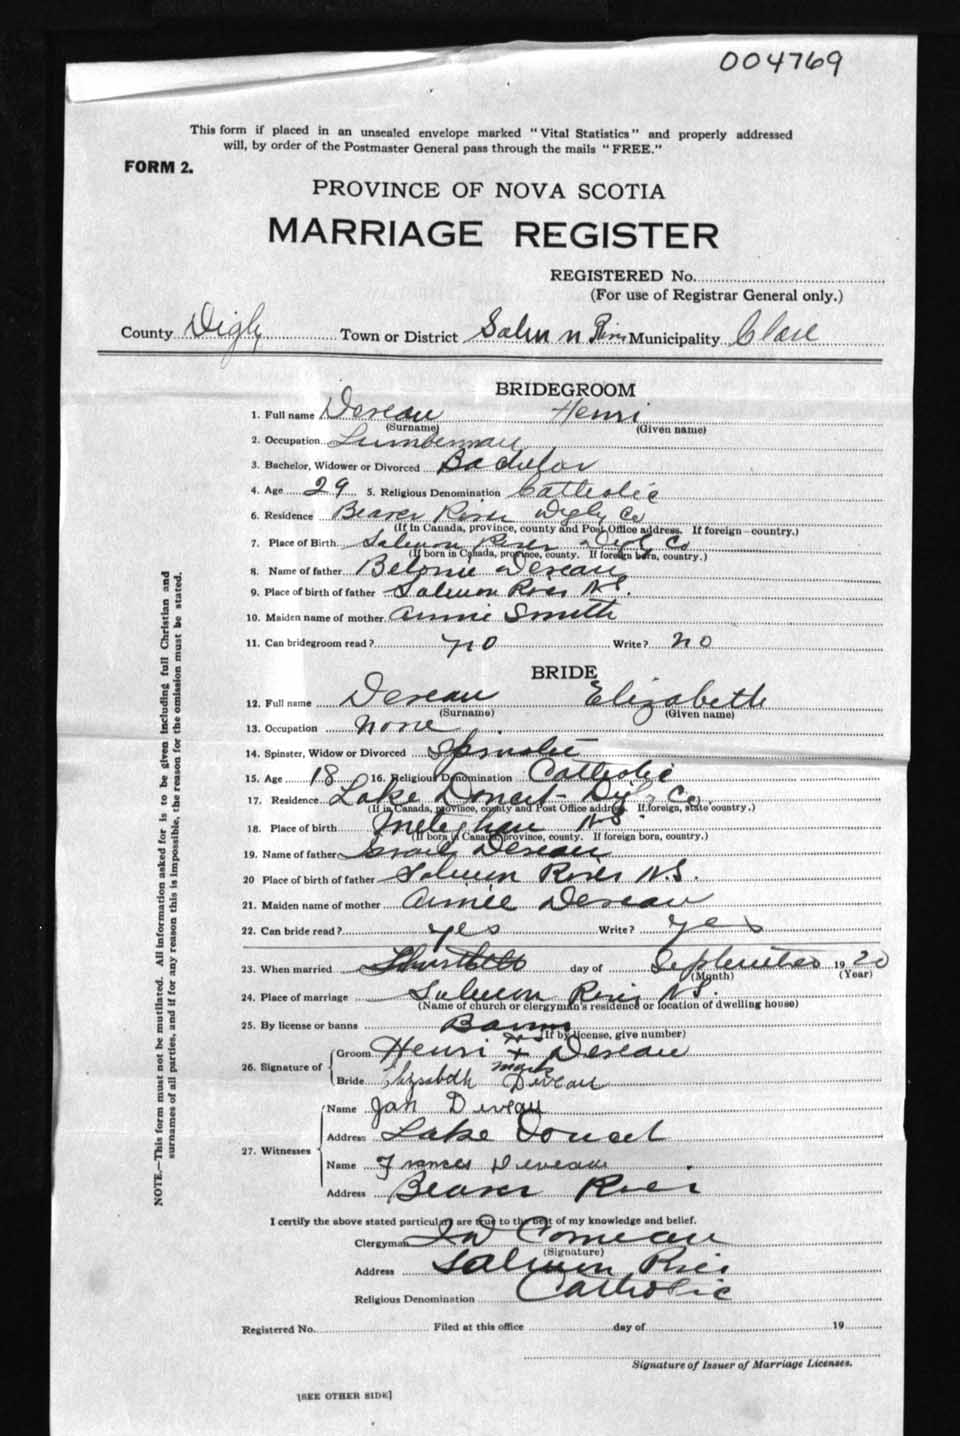 004769
This form if placed in an unsealed envelope marked "Vital Statistics" and properly addressed
will, by order of the Postmaster General pass through the mails "FREE."
FORM 2.
PROVINCE OF NOVA SCOTIA
MARRIAGE REGISTER
REGISTERED No.
(For use of Registrar General only.)
County Digby Town or District Salmon River Municipality Clare
BRIDEGROOM
1. Full name Deveau Henri
(Surname) (Given name)
2. Occupation Lumberman
3. Bachelor, Widower or Divorced Bachelor
4. Age 29 5. Religious Denomination Catholic
6. Residence Beaver River Digby Co
(If in Canada, province, county and Post Office address. If foreign—country.)
7. Place of Birth Salmon River Digby Co
(If born in Canada, province, county. If foreign born, country.)
8. Name of father Belonie Deveau
9. Place of birth of father Salmon River N.S.
10. Maiden name of mother Annie Smith
11. Can bridegroom read? no Write? no
BRIDE
12. Full name Deveau Elizabeth
(Surname) (Given name)
13. Occupation none
14. Spinster, Widow or Divorced Spinster
15. Age 18 16. Religious Denomination Catholic
17. Residence Lake Doucet Digby Co.
(If in Canada, province, county and Post Office address. If foreign, state country.)
18. Place of birth Meteghan N.S.
(If born in Canada, province, county. If foreign born, country.)
19. Name of father Israel Deveau
20 Place of birth of father Salmon River N.S.
21. Maiden name of mother Aimée Deveau
22. Can bride read? yes Write? yes
23. When married day of September 1920
(Month) (Year)
24. Place of marriage Salmon River N.S.
(Name of church or clergyman's residence or location of dwelling house)
25. By license or banns Banns
(If by license, give number)
26. Signature of Groom Henri his X Deveau
mark
Bride Elizabeth Deveau
27. Witnesses Name Deveau
Address Lake Doucet
Name Frances Deveau
Address Beaver River
I certify the above stated particulars are true to the best of my knowledge and belief.
Clergyman Comeau
(Signature)
Address Salmon River
Religious Denomination Catholic
Registered No. Filed at this office day of 19
Signature of Issuer of Marriage Licenses.
[SEE OTHER SIDE]
NOTE.—This form must not be mutilated. All information asked for is to be given including full Christian and
surnames of all parties, and if for any reason this is impossible, the reason for the omission must be stated.